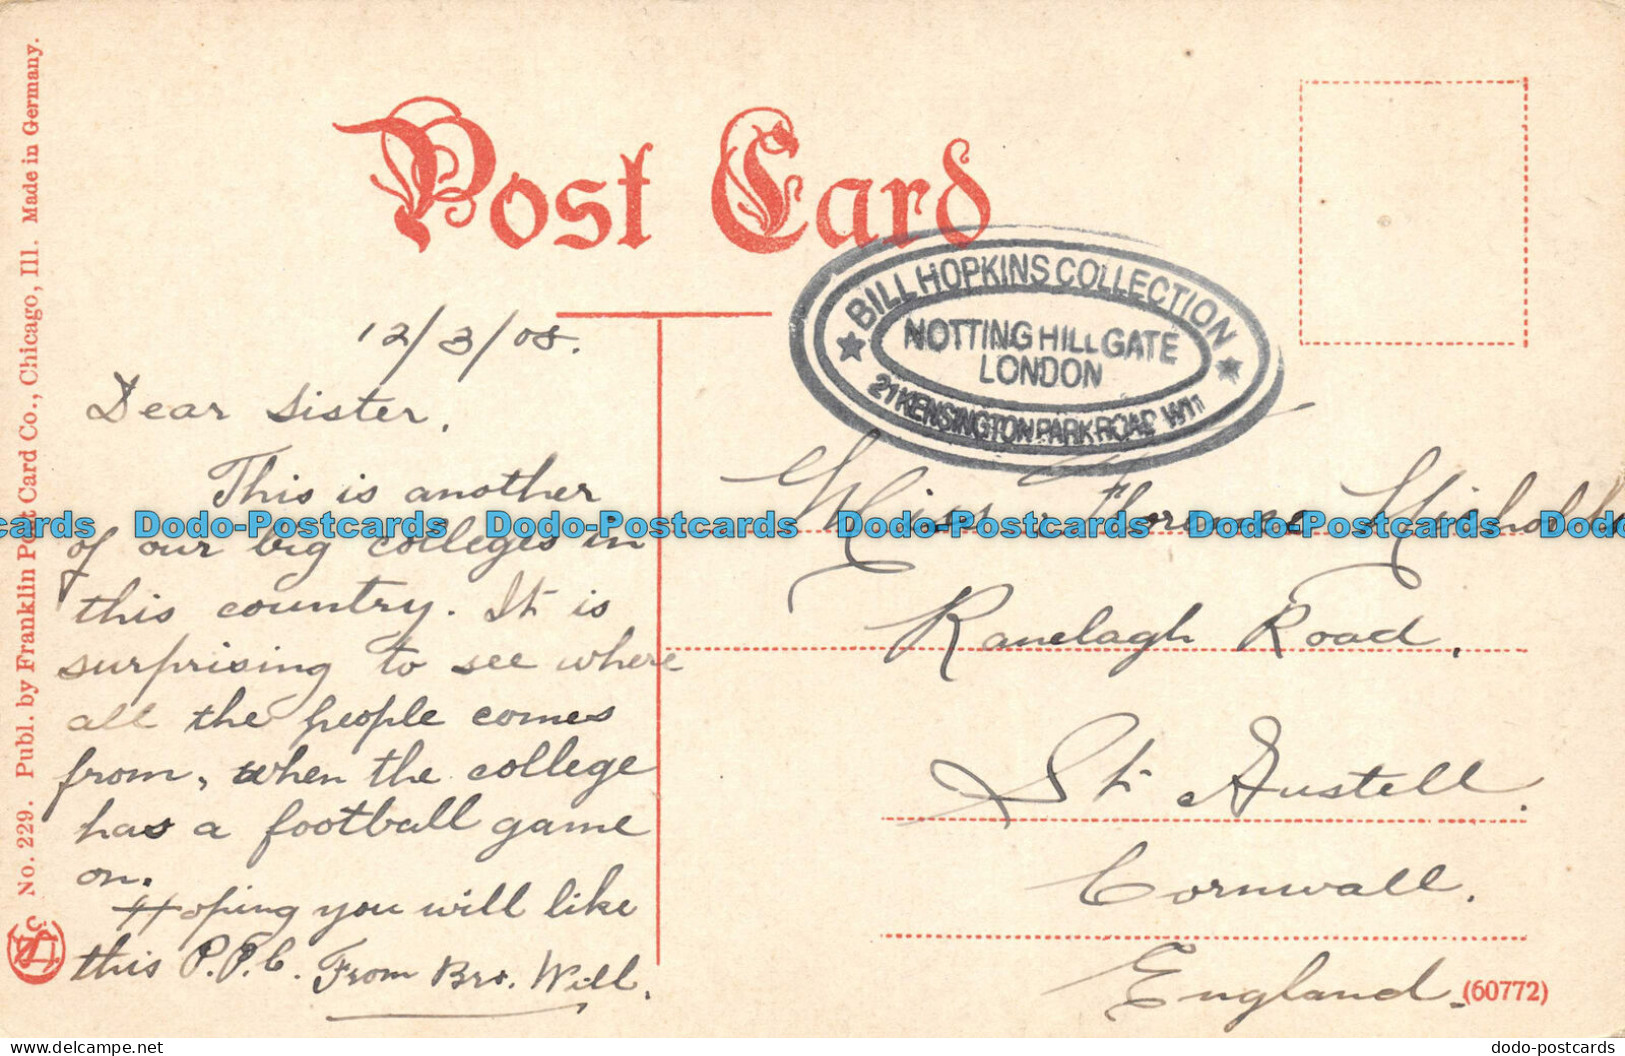 Post Card
No. 229. Publ. by Franklin Post Card Co., Chicago, Ill. Made in Germany.
BILL HOPKINS COLLECTION
NOTTING HILL GATE
LONDON
21 KENSINGTON PARK ROAD W11
12/3/08.
Dear Sister,
This is another
of our big colleges in
this country. It is
surprising to see where
all the people comes
from, when the college
has a football game
on.
Hoping you will like
this P.P.C. From Bro. Will.
Miss Florence
Ranelagh Road,
St Austell.
Cornwall.
England.
(60772)
Dodo-Postcards Dodo-Postcards Dodo-Postcards Dodo-Postcards Dodo-Postcards
dodo-postcards.com